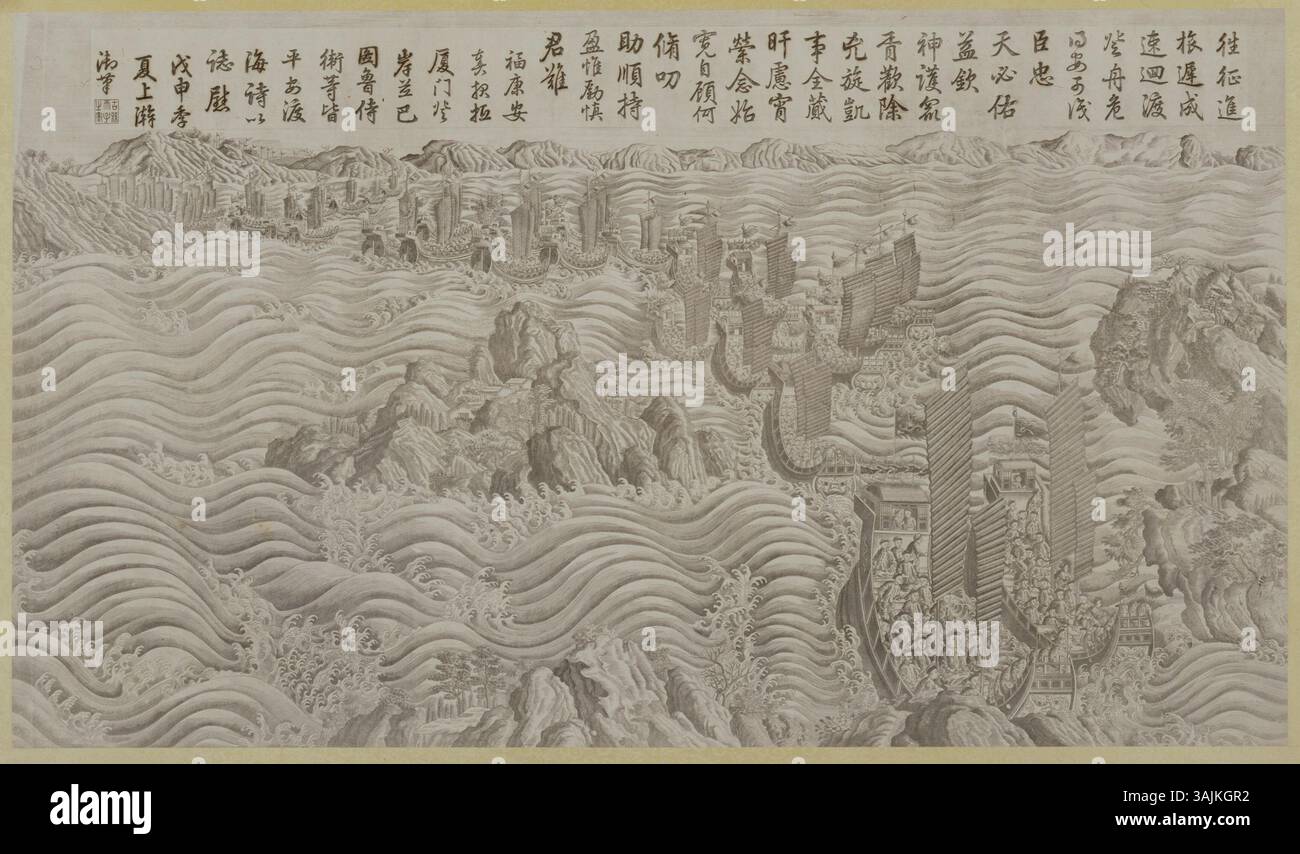 徃征進
旅遲成
速迴渡
登舟危
安可淺
臣忠
天必佑
益欽
神護眾
胥歡除
兇旋凱
事全蕆
旰慮宵
縈念始
寬自顧何
脩叨
助順持
盈惟勵慎
君難
福康安
奏報抵
厦門登
岸並巴
圖魯侍
衛等皆
平安渡
海詩以
誌慰
戊申季
夏上澣
御筆
alamy
alamy
Image ID: 3AJKGR2
www.alamy.com